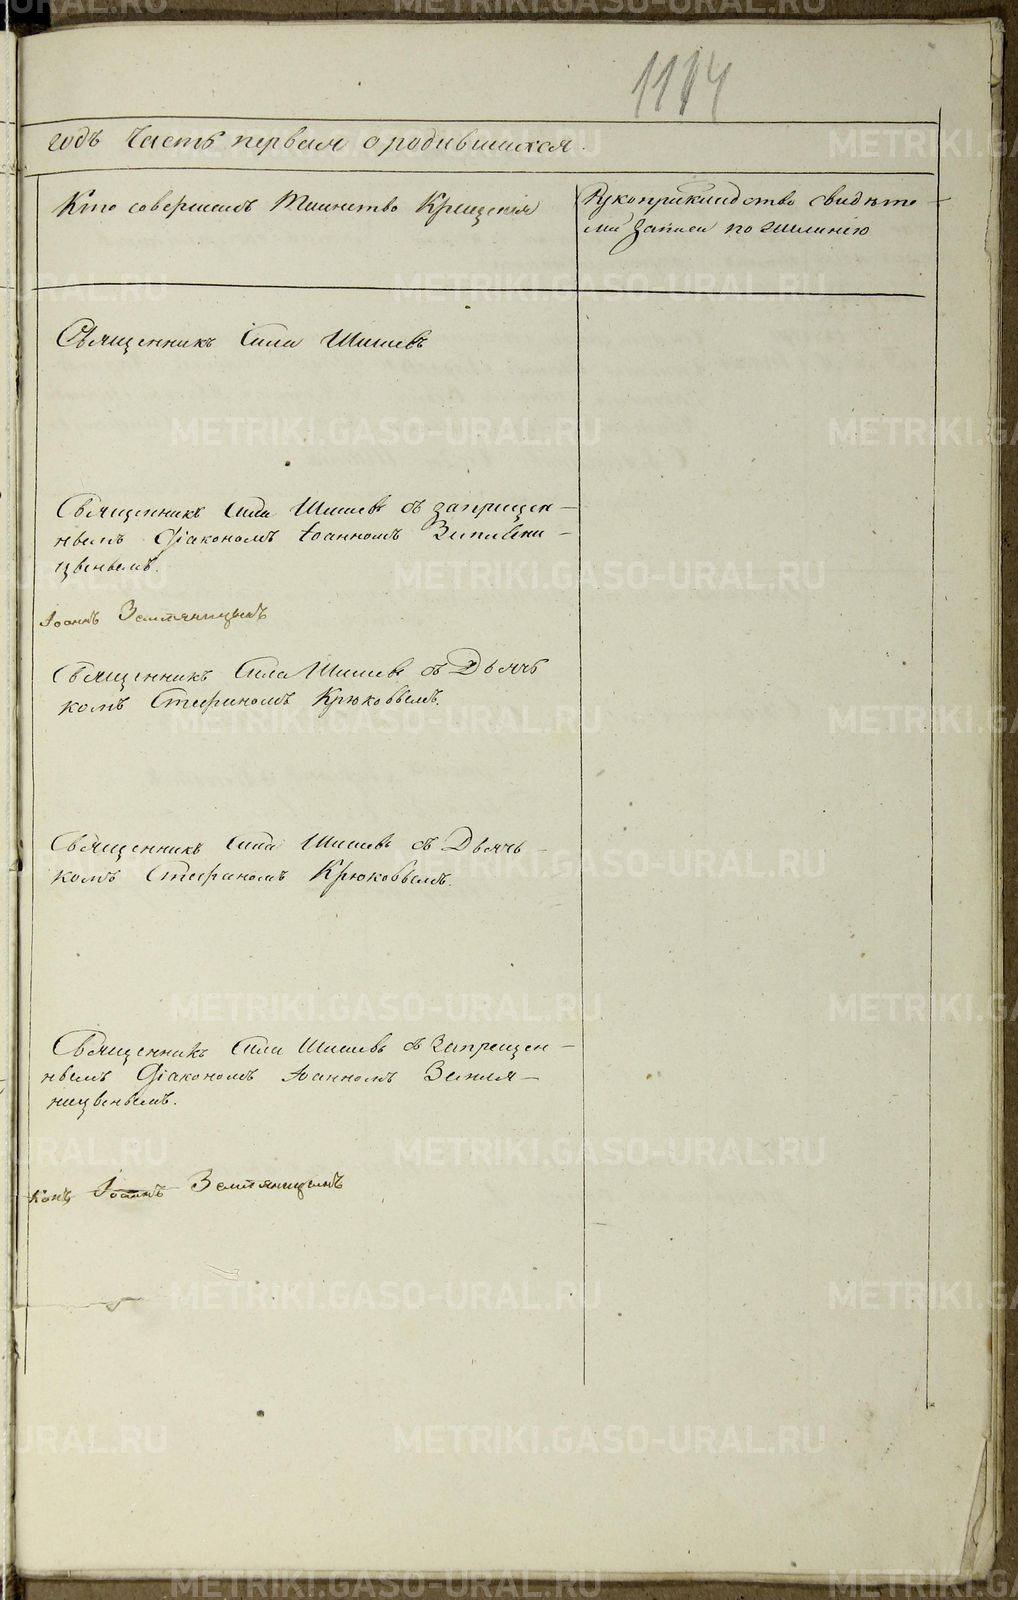 1114
годъ Часть первая о родившихся.
Кто совершалъ Таинство Крещенія
Рукоприкладство свидѣте-
лей записи по желанію
Священникъ Сила Шишевъ
Священникъ Сила Шишевъ съ запрещен-
нымъ Діакономъ Іоанномъ Земляни-
цынымъ.
Іоаннъ Земляницынъ
Священникъ Сила Шишевъ съ Дьяч
комъ Стефаномъ Крюковымъ.
Священникъ Сила Шишевъ съ Дьячь-
комъ Стефаномъ Крюковымъ.
Священникъ Сила Шишевъ съ Запрещен-
нымъ Діакономъ Іоанномъ Земля-
ницынымъ.
Іоаннъ Земляницынъ
METRIKI.GASO-URAL.RU